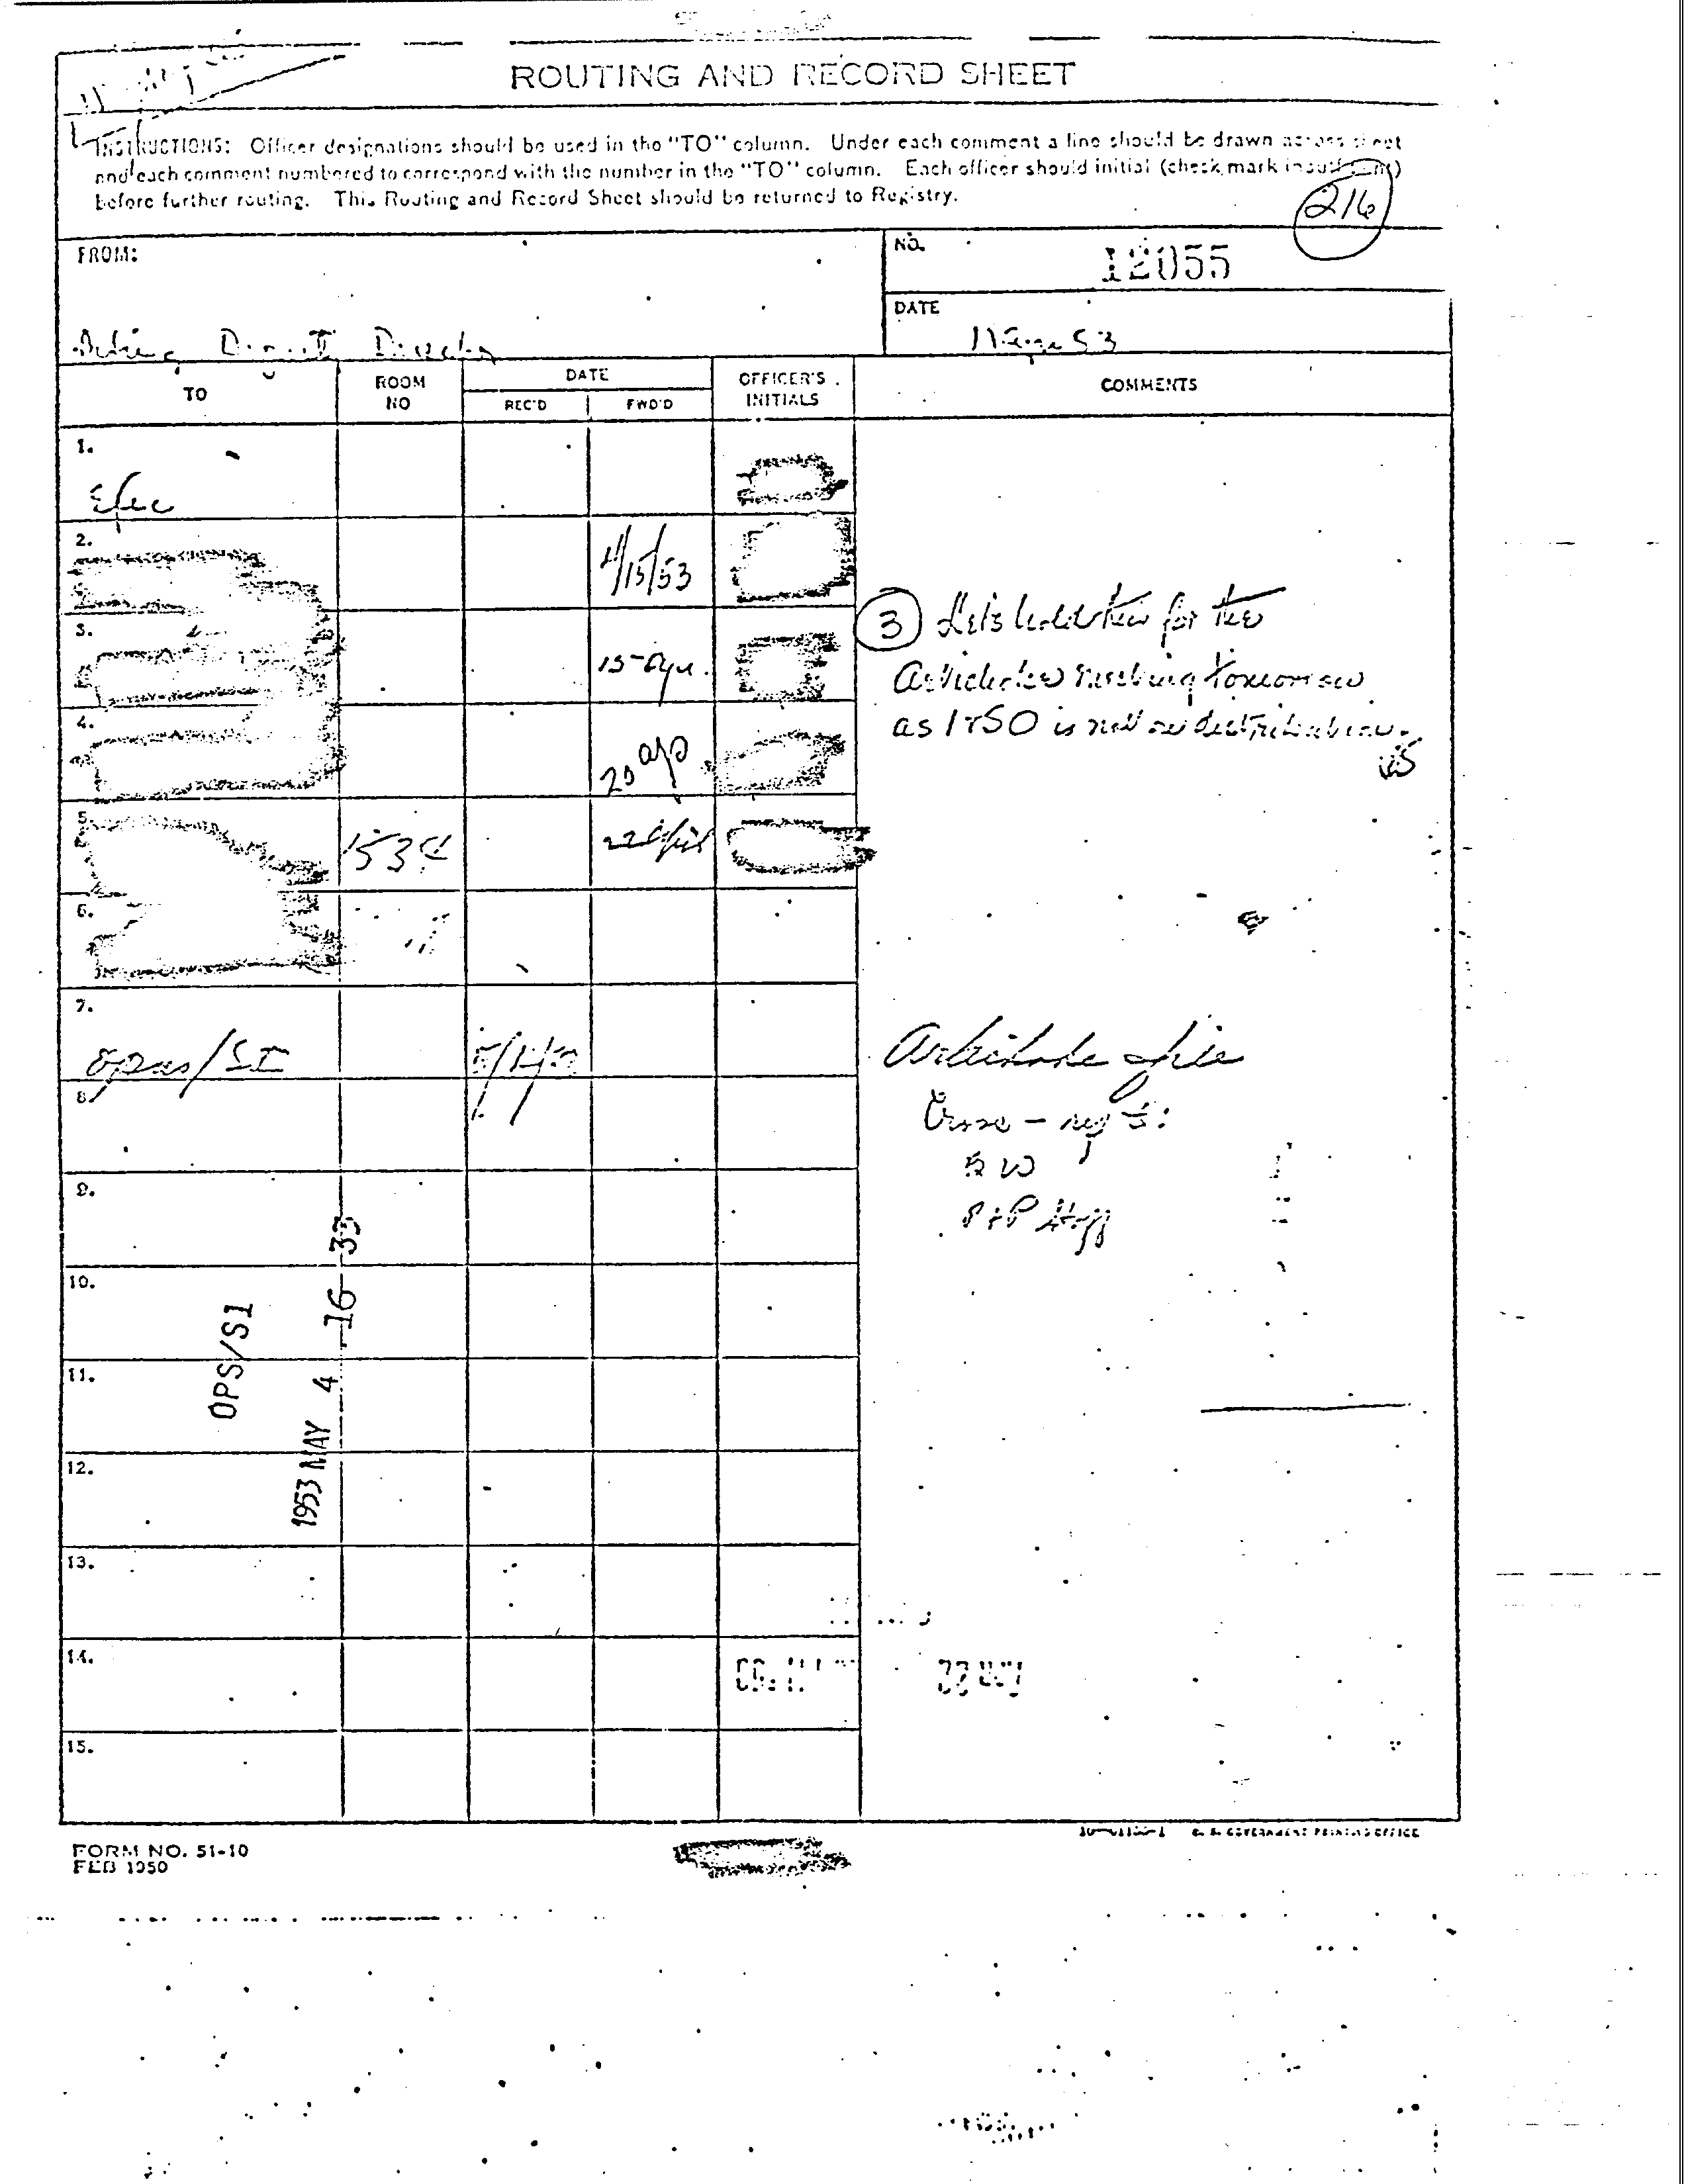 ROUTING AND RECORD SHEET
INSTRUCTIONS: Officer designations should be used in the "TO" column. Under each comment a line should be drawn across sheet
and each comment numbered to correspond with the number in the "TO" column. Each officer should initial (check mark insufficient)
before further routing. This Routing and Record Sheet should be returned to Registry.
216
FROM:
NO.
12055
DATE
Acting Deputy Director
53
TO
ROOM
NO
DATE
REC'D
FWD'D
OFFICER'S
INITIALS
COMMENTS
1.
2.
4/15/53
3.
15 Apr.
③ Let's hold this for the
Artichoke meeting tomorrow
as is not on distribution.
4.
20 Apr
5.
1534
22 April
6.
7.
Artichoke file
8.
Cross-ref
P+P Staff
9.
10.
OPS/SI
1953 MAY 4 16 33
11.
12.
13.
14.
15.
FORM NO. 51-10
FEB 1950
U. S. GOVERNMENT PRINTING OFFICE